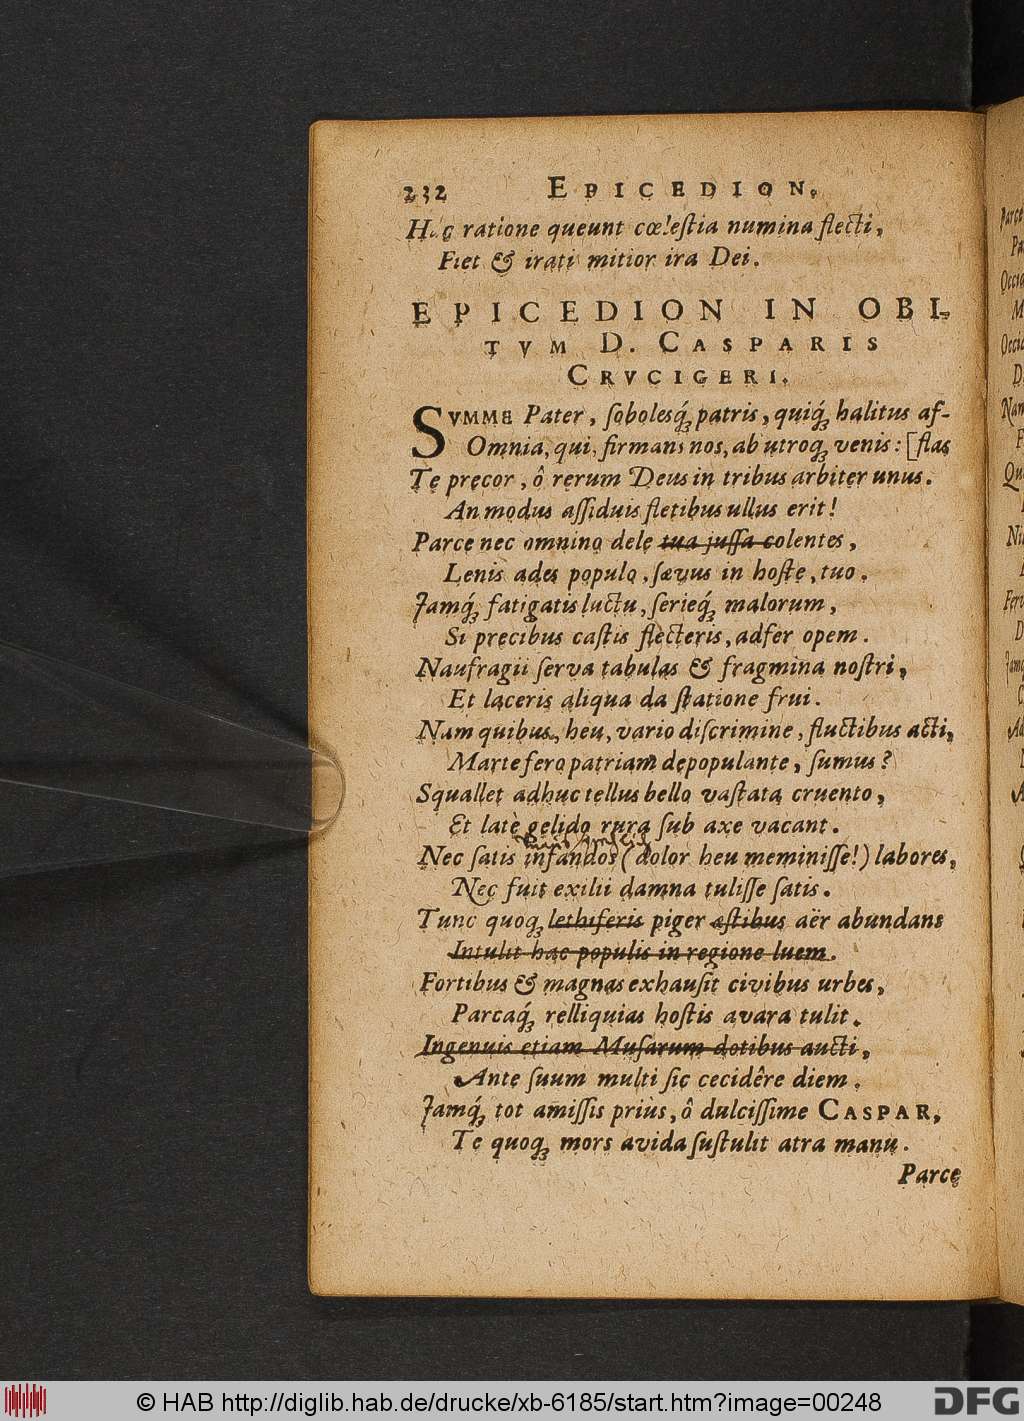 232 EPICEDION.
Hac ratione queunt cœlestia numina flecti,
Fiet & irati mitior ira Dei.
EPICEDION IN OBI-
TVM D. CASPARIS
CRVCIGERI.
SVMME Pater, sobolesq́ꝫ patris, quiq́ꝫ halitus af-
Omnia, qui, firmans nos, ab utroqꝫ venis: [flas
Te precor, ô rerum Deus in tribus arbiter unus.
An modus assiduis fletibus ullus erit!
Parce nec omnino dele tua jussa colentes,
Lenis ades populo, sævus in hoste, tuo.
Jamq́ꝫ fatigatis luctu, serieq́ꝫ malorum,
Si precibus castis flecteris, adfer opem.
Naufragii serva tabulas & fragmina nostri,
Et laceris aliqua da statione frui.
Nam quibus, heu, vario discrimine, fluctibus acti,
Marte fero patriam depopulante, sumus?
Squallet adhuc tellus bello vastata cruento,
Et latè gelido rura sub axe vacant.
Nec satis infandos (dolor heu meminisse!) labores,
Nec fuit exilii damna tulisse satis.
Tunc quoqꝫ lethiferis piger æstibus aër abundans
Intulit hac populis in regione luem.
Fortibus & magnas exhausit civibus urbes,
Parcaq́ꝫ relliquias hostis avara tulit.
Ingenuis etiam Musarum dotibus aucti,
Ante suum multi sic cecidêre diem.
Jamq́ꝫ tot amissis prius, ô dulcissime CASPAR,
Te quoqꝫ mors avida sustulit atra manu.
Parce
© HAB http://diglib.hab.de/drucke/xb-6185/start.htm?image=00248 DFG